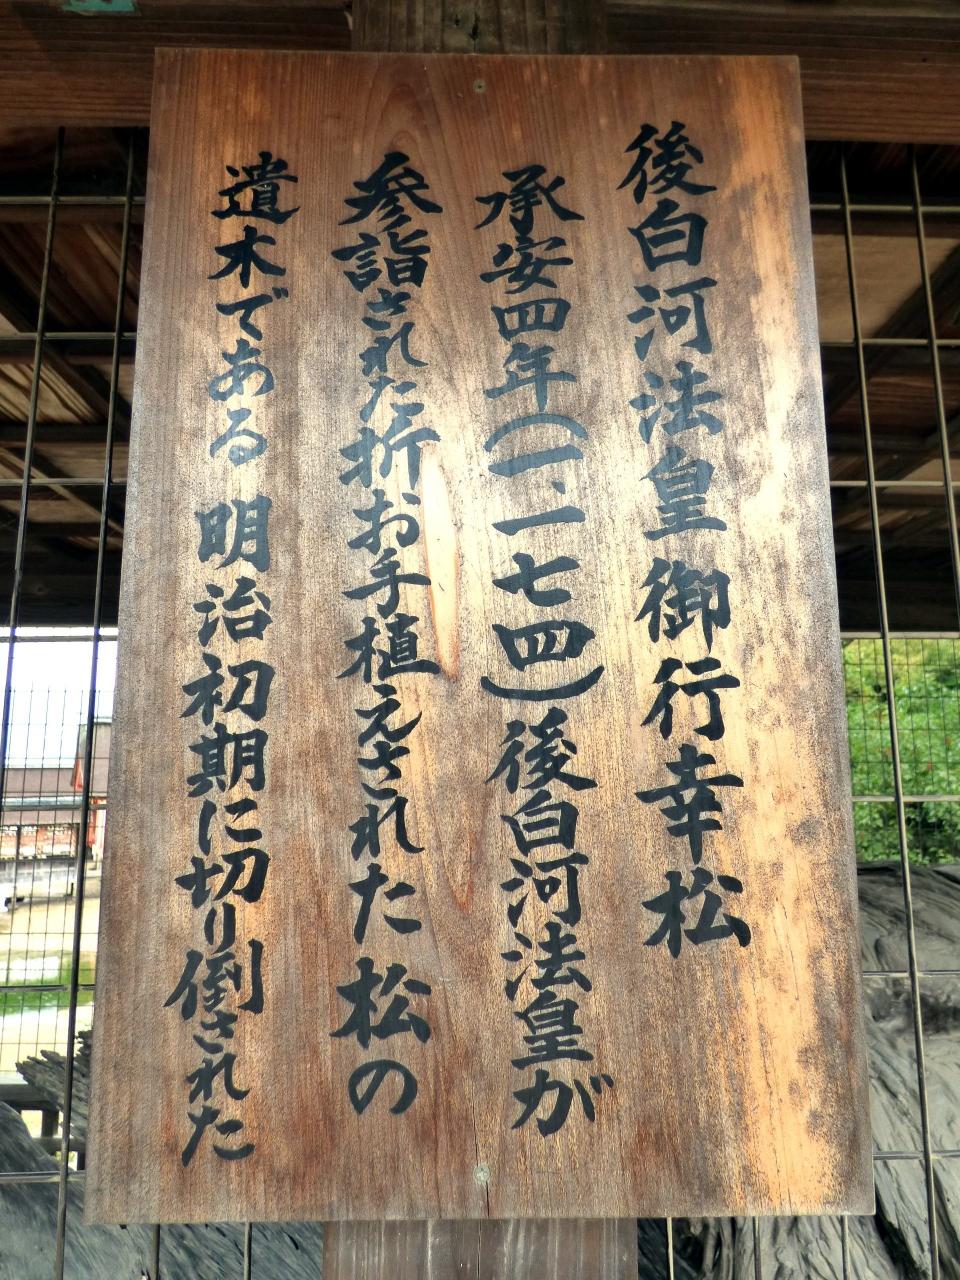 後白河法皇御行幸松
承安四年（一、一七四）後白河法皇が
参詣された折お手植えされた松の
遺木である 明治初期に切り倒された